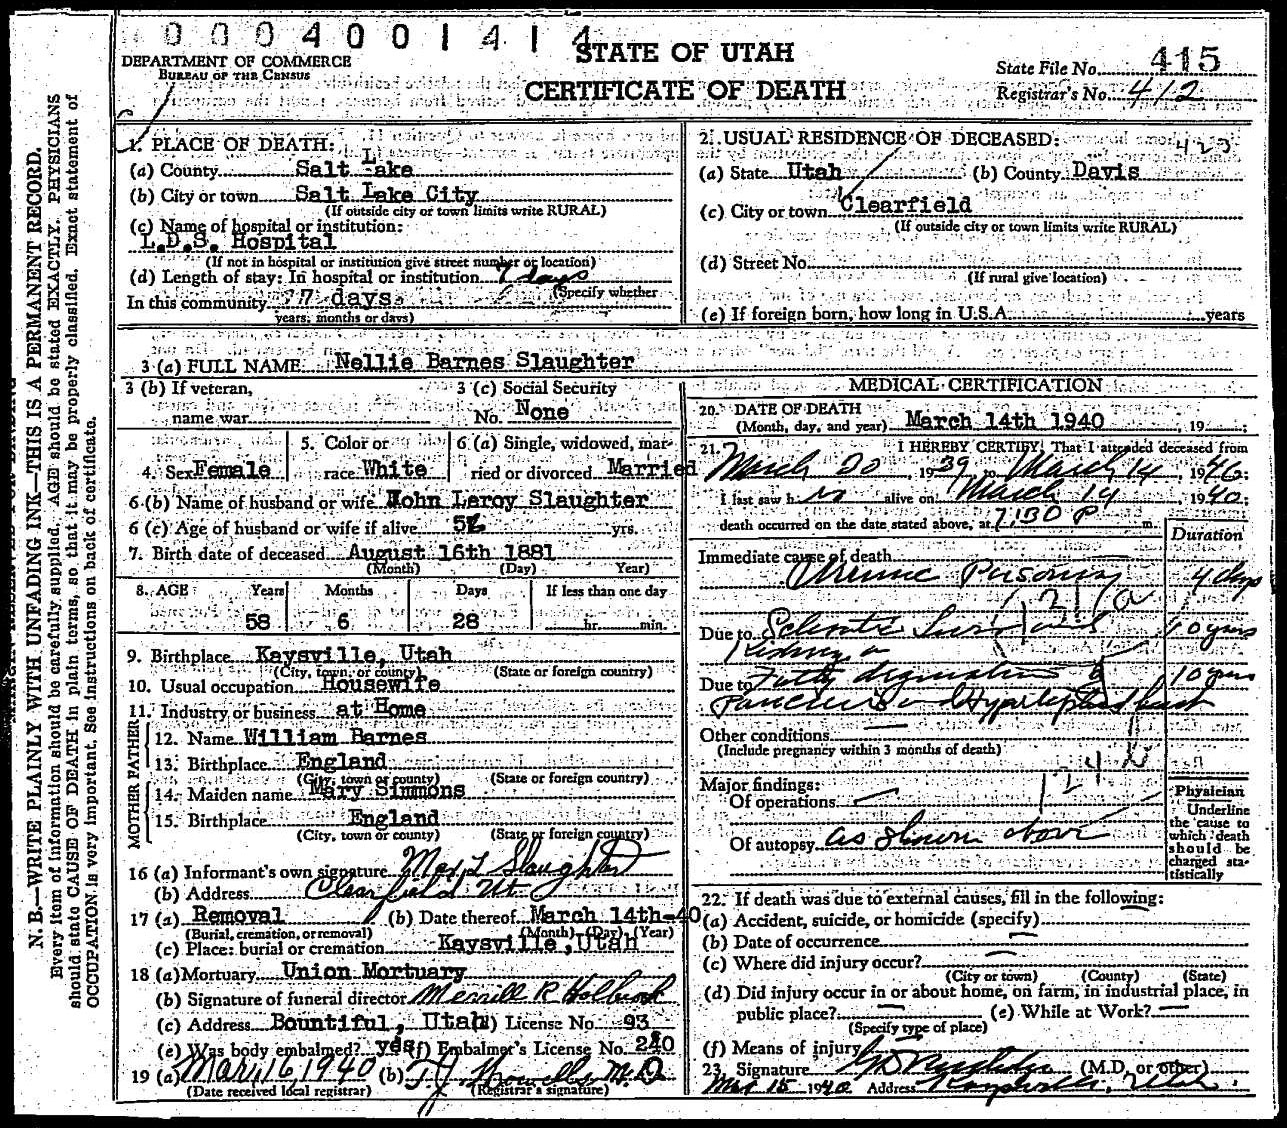 0004001414
STATE OF UTAH
CERTIFICATE OF DEATH
DEPARTMENT OF COMMERCE
BUREAU OF THE CENSUS
State File No. 415
Registrar's No. 412
N. B.—WRITE PLAINLY WITH UNFADING INK—THIS IS A PERMANENT RECORD.
Every item of information should be carefully supplied. AGE should be stated EXACTLY. PHYSICIANS
should state CAUSE OF DEATH in plain terms, so that it may be properly classified. Exact statement of
OCCUPATION is very important. See instructions on back of certificate.
1. PLACE OF DEATH:
(a) County Salt Lake
(b) City or town Salt Lake City
(If outside city or town limits write RURAL)
(c) Name of hospital or institution:
L.D.S. Hospital
(If not in hospital or institution give street number or location)
(d) Length of stay: In hospital or institution 7 days
(Specify whether
In this community 7 days
years, months or days)
2. USUAL RESIDENCE OF DECEASED:
423
(a) State Utah (b) County Davis
(c) City or town Clearfield
(If outside city or town limits write RURAL)
(d) Street No.
(If rural give location)
(e) If foreign born, how long in U.S.A. years
3 (a) FULL NAME Nellie Barnes Slaughter
3 (b) If veteran,
name war
3 (c) Social Security
No. None
4. Sex Female
5. Color or
race White
6 (a) Single, widowed, mar-
ried or divorced Married
6 (b) Name of husband or wife John Leroy Slaughter
6 (c) Age of husband or wife if alive yrs.
7. Birth date of deceased August 16th 1881
(Month) (Day) Year)
8. AGE Years Months Days If less than one day
58 6 28 hr. min.
9. Birthplace Kaysville, Utah
(City, town, or county) (State or foreign country)
10. Usual occupation Housewife
11. Industry or business at Home
FATHER
12. Name William Barnes
13. Birthplace England
(City, town or county) (State or foreign country)
MOTHER
14. Maiden name Mary Simmons
15. Birthplace England
(City, town or county) (State or foreign country)
16 (a) Informant's own signature Max L Slaughter
(b) Address Clearfield Ut
17 (a) Removal (b) Date thereof March 14th-40
(Burial, cremation, or removal) (Month) (Day) (Year)
(c) Place: burial or cremation Kaysville, Utah
18 (a) Mortuary Union Mortuary
(b) Signature of funeral director Merrill R Holbrook
(c) Address Bountiful, Utah (d) License No. 93
(e) Was body embalmed? yes (f) Embalmer's License No. 240
19 (a) Mar, 16 1940 (b) T J Howells M.D
(Date received local registrar) (Registrar's signature)
MEDICAL CERTIFICATION
20. DATE OF DEATH
(Month, day, and year) March 14th 1940, 19
21. I HEREBY CERTIFY, That I attended deceased from
March 20, 1939 to March 14, 1940;
I last saw h alive on March 14 1940;
death occurred on the date stated above, at 7:30 P m.
Duration
Immediate cause of death
Uremic Poisoning 4 days
131 a
Due to 10 years
Kidney
Due to Fatty degeneration of 10 years
Pancreas and
Other conditions
(Include pregnancy within 3 months of death)
124 b
Major findings:
Of operations
Of autopsy as shown above
Physician
Underline
the cause to
which death
should be
charged sta-
tistically
22. If death was due to external causes, fill in the following:
(a) Accident, suicide, or homicide (specify)
(b) Date of occurrence
(c) Where did injury occur?
(City or town) (County) (State)
(d) Did injury occur in or about home, on farm, in industrial place, in
public place? (e) While at Work?
(Specify type of place)
(f) Means of injury
23. Signature (M.D. or other)
Mar 15 1940 Address Kaysville, Utah.